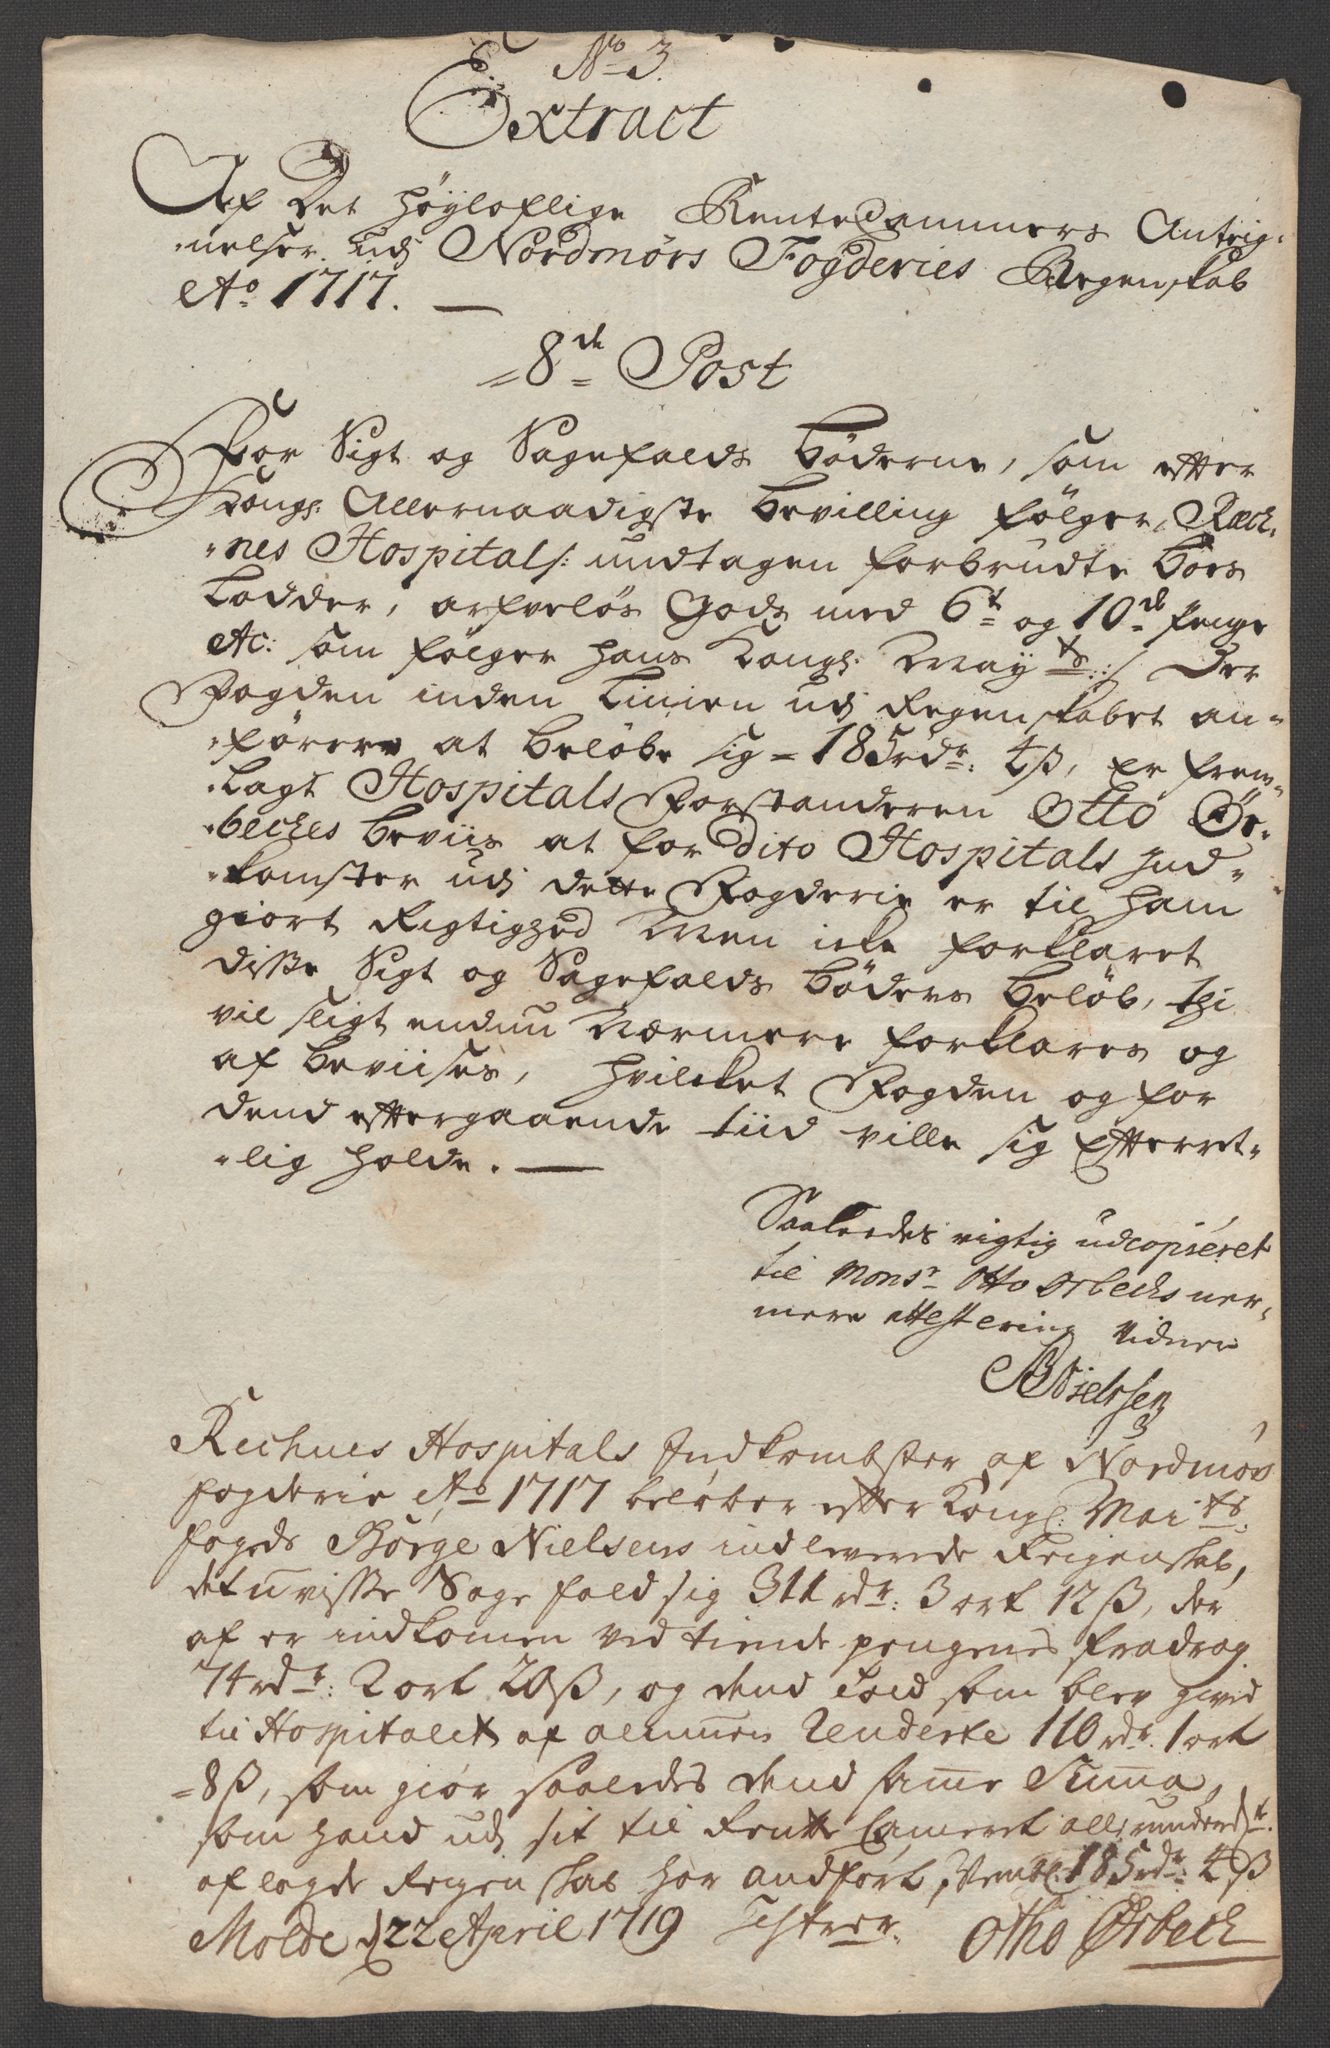 No 3.
Extract
Af Det Höyloflige Rente Cammers Anteig-
nelser udj Nordmørs Fogderies Regenskab
Ao 1717.
8de Post
For Sigt og Sagefalds Böderne, som efter
Kongs: Allernaadigste bevilling fölger, Rech-
nes Hospital/: undtagen forbrudte boes
Lodder, arfveløs Gods med 6t og 10de penge
Ac: som fölger hans Kongl: May ts:/ Der
Fogden inden Linien udj Regenskabet an-
förere at beløbe sig = 185 rdr: 4 ß, er frem-
lagt Hospitals Forstanderen Otto Ør-
bechs beviis at for dito Hospitals Ind-
komster udj dette Fogderie er til ham
giort Rigtighed Men icke forklaret
disse Sigt og Sagefalds böders beløb, thi
vil sligt endnu nærmere forklares og
af beviises, hvilcket Fogden og for
dend eftergaaende tiid ville sig Efterret-
lig holde.
Saaledes rigtig udcopiéret
til Monsr Otto Ørbechs ner-
mere attestering vidner
BNielssen
Rechnes Hospitals Indkombster af Nordmørs
fogderie Ao 1717 beløber efter Kongl: Mai ts:
fogeds Børge Nielsens indleverede Reigenskab,
det uvisse Sagefald sig 311 rdr: 3 ort 12 ß, der
af er indkomen ved tiende pengenes fradrag
74 rdr: 2 ort 20 ß, og dend told som blev gived
til Hospitalet af almuen 110 rdr. 1 ort
8 ß, som giør saaledes dend same Suma,
som hand udj sit til Rentte Cameret allerunderdt.
aflagde Reigenskab har andført, Nembl: 185 rdr: 4 ß
Molde d 22 April 1719 Testerer.
Otho Ørbech